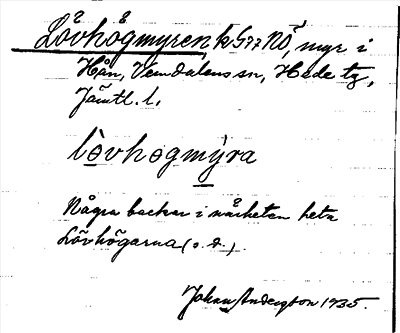 Lövhögmyren, k G77 NÖ, myr i
Hån, Vemdalens sn, Hede tg,
Jämtl. l.
lòvhøgmýra
Några backar i närheten heta
Lövhögarna (o. d.).
Johan Andersson 1935.